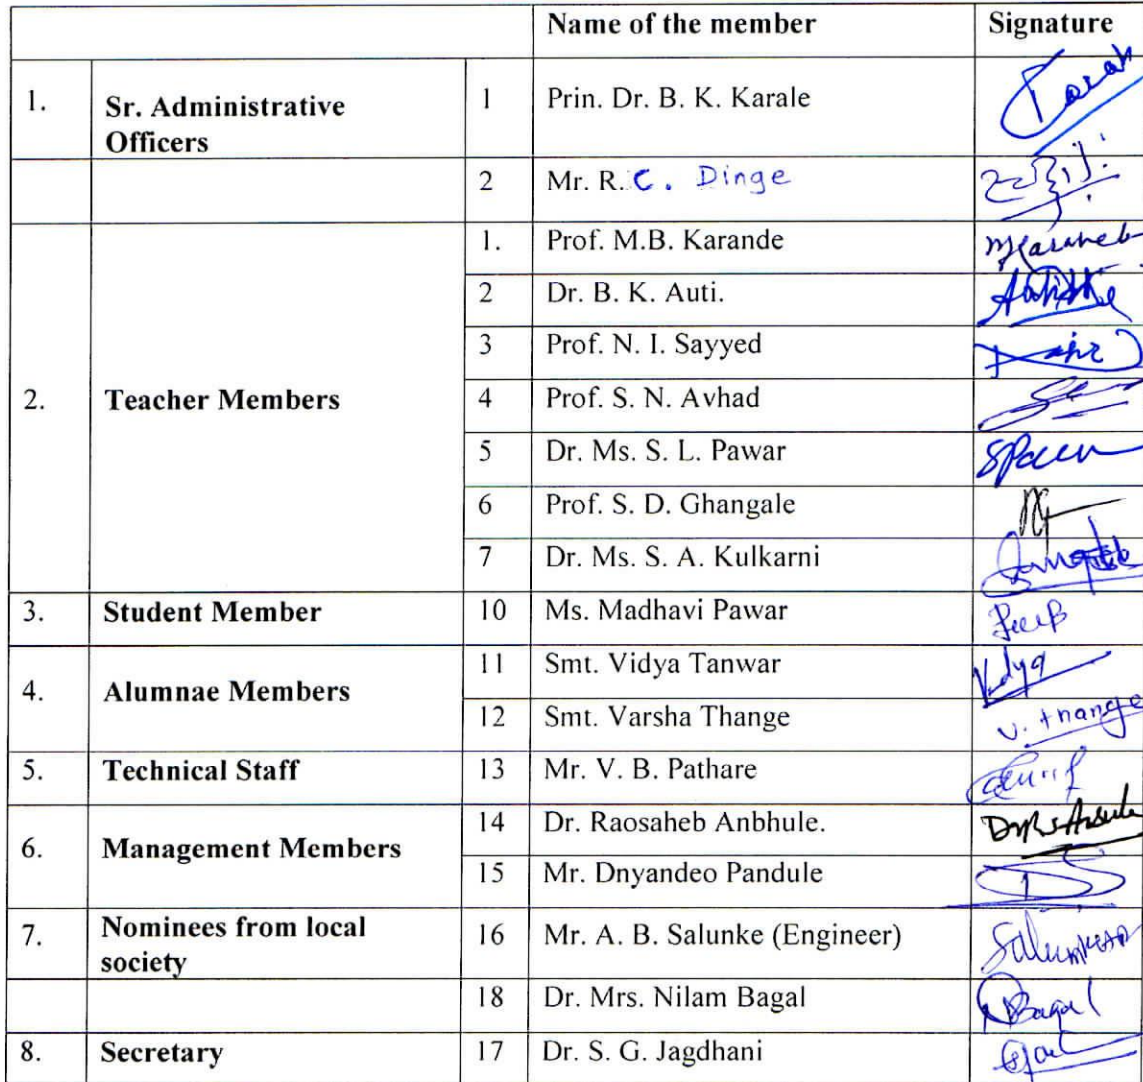 Name of the member Signature
1. Sr. Administrative 1 Prin. Dr. B. K. Karale
Officers
2 Mr. R. C. Dinge
1. Prof. M.B. Karande
2 Dr. B. K. Auti.
3 Prof. N. I. Sayyed
2. Teacher Members 4 Prof. S. N. Avhad
5 Dr. Ms. S. L. Pawar
6 Prof. S. D. Ghangale
7 Dr. Ms. S. A. Kulkarni
3. Student Member 10 Ms. Madhavi Pawar
4. Alumnae Members 11 Smt. Vidya Tanwar Vidya
12 Smt. Varsha Thange V. thange
5. Technical Staff 13 Mr. V. B. Pathare
6. Management Members 14 Dr. Raosaheb Anbhule.
15 Mr. Dnyandeo Pandule
7. Nominees from local 16 Mr. A. B. Salunke (Engineer)
society
18 Dr. Mrs. Nilam Bagal
8. Secretary 17 Dr. S. G. Jagdhani